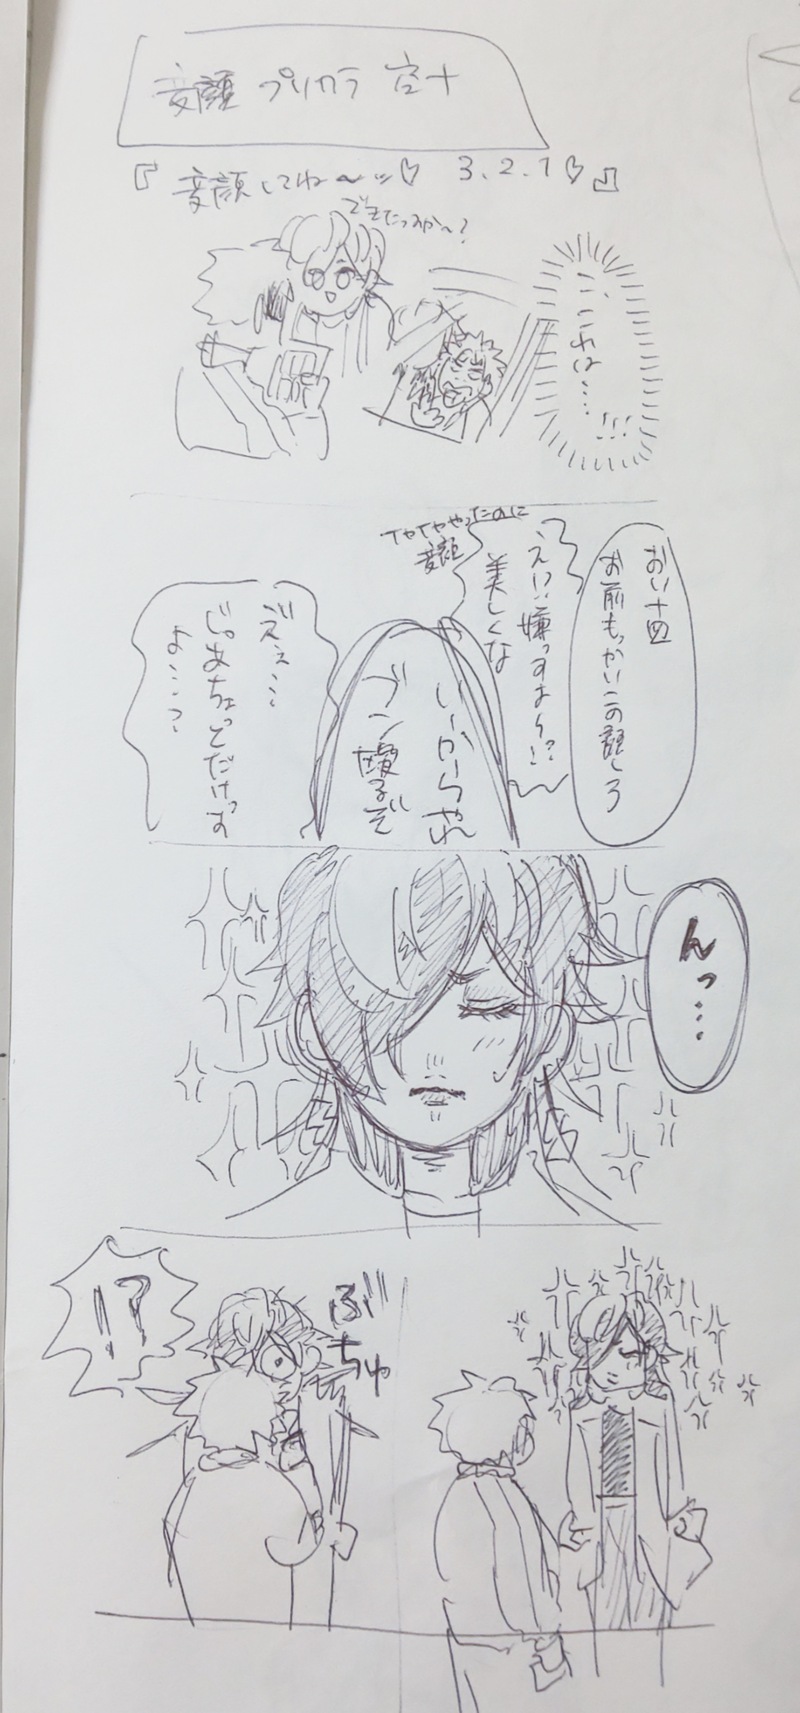 変顔 プリカラ 空十
『変顔してね〜ッ♡ 3.2.1♡』
できたっすか〜?
こ、これは……!!!
おい十四
お前もっかいこの顔しろ
えりい嫌っすよ〜!?
美しくな
イヤイヤやったのに
変顔
いーからやれ
ブン殴るぞ
ズえぇ…
じゃあちょっとだけっす
よ…?
んっ…
ぶちゅ
!?